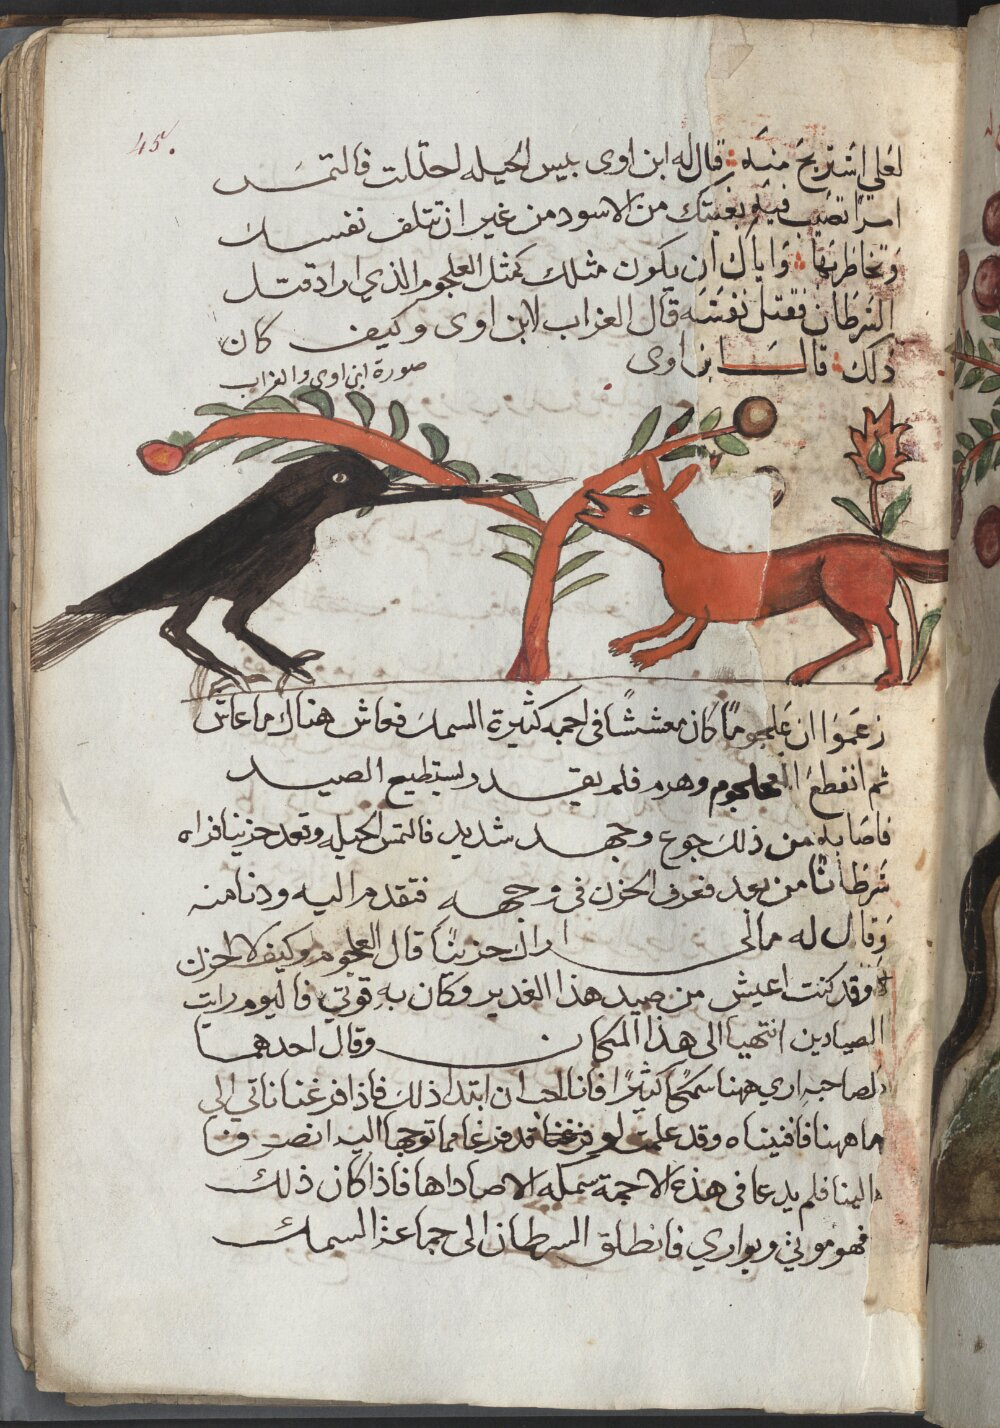 45.
لعلي استريح منه قال له ابن اوى بيس الحيله احتلت فالتمس
امرًا تصيب فيه بغيتك من الاسود من غير ان تتلف نفسك
وتخاطر بها واياك ان يكون مثلك كمثل العلجوم الذي اراد قتل
السرطان فقتل نفسه قال الغراب لابن اوى وكيف كان
ذلك قال ابن اوى
صورة ابن اوى والغراب
زعموا ان علجومًا كان معششًا في اجمه كثيرة السمك فعاش هناك ما عاش
ثم انقطع العلجوم وهرم فلم يقدر يستطيع الصيد
فاصابه من ذلك جوع وجهد شديد فالتمس الحيله وقعد حزينا فراه
سرطانًا من بعد فعرف الحزن في وجهه فتقدم اليه ودنا منه
وقال له مالي اراك حزينًا قال العلجوم وكيف لا احزن
وقد كنت اعيش من صيد هذا الغدير وكان به قوتي فاليوم رايت
الصيادين انتهيا الى هذا المكان وقال احدهما
لصاحبه اري ههنا سمكًا كثيرًا فانا احب ان ابتدا ذلك فاذا فرغنا ناتي الي
ما ههنا فافنيناه وقد علمت لو قد فرغا مما توجها اليه انصرفا
الينا فلم يدعا في هذه الاجمة سمكه الا صاداها فاذا كان ذلك
فهو موتي وبواري فانطلق السرطان الى جماعة السمك